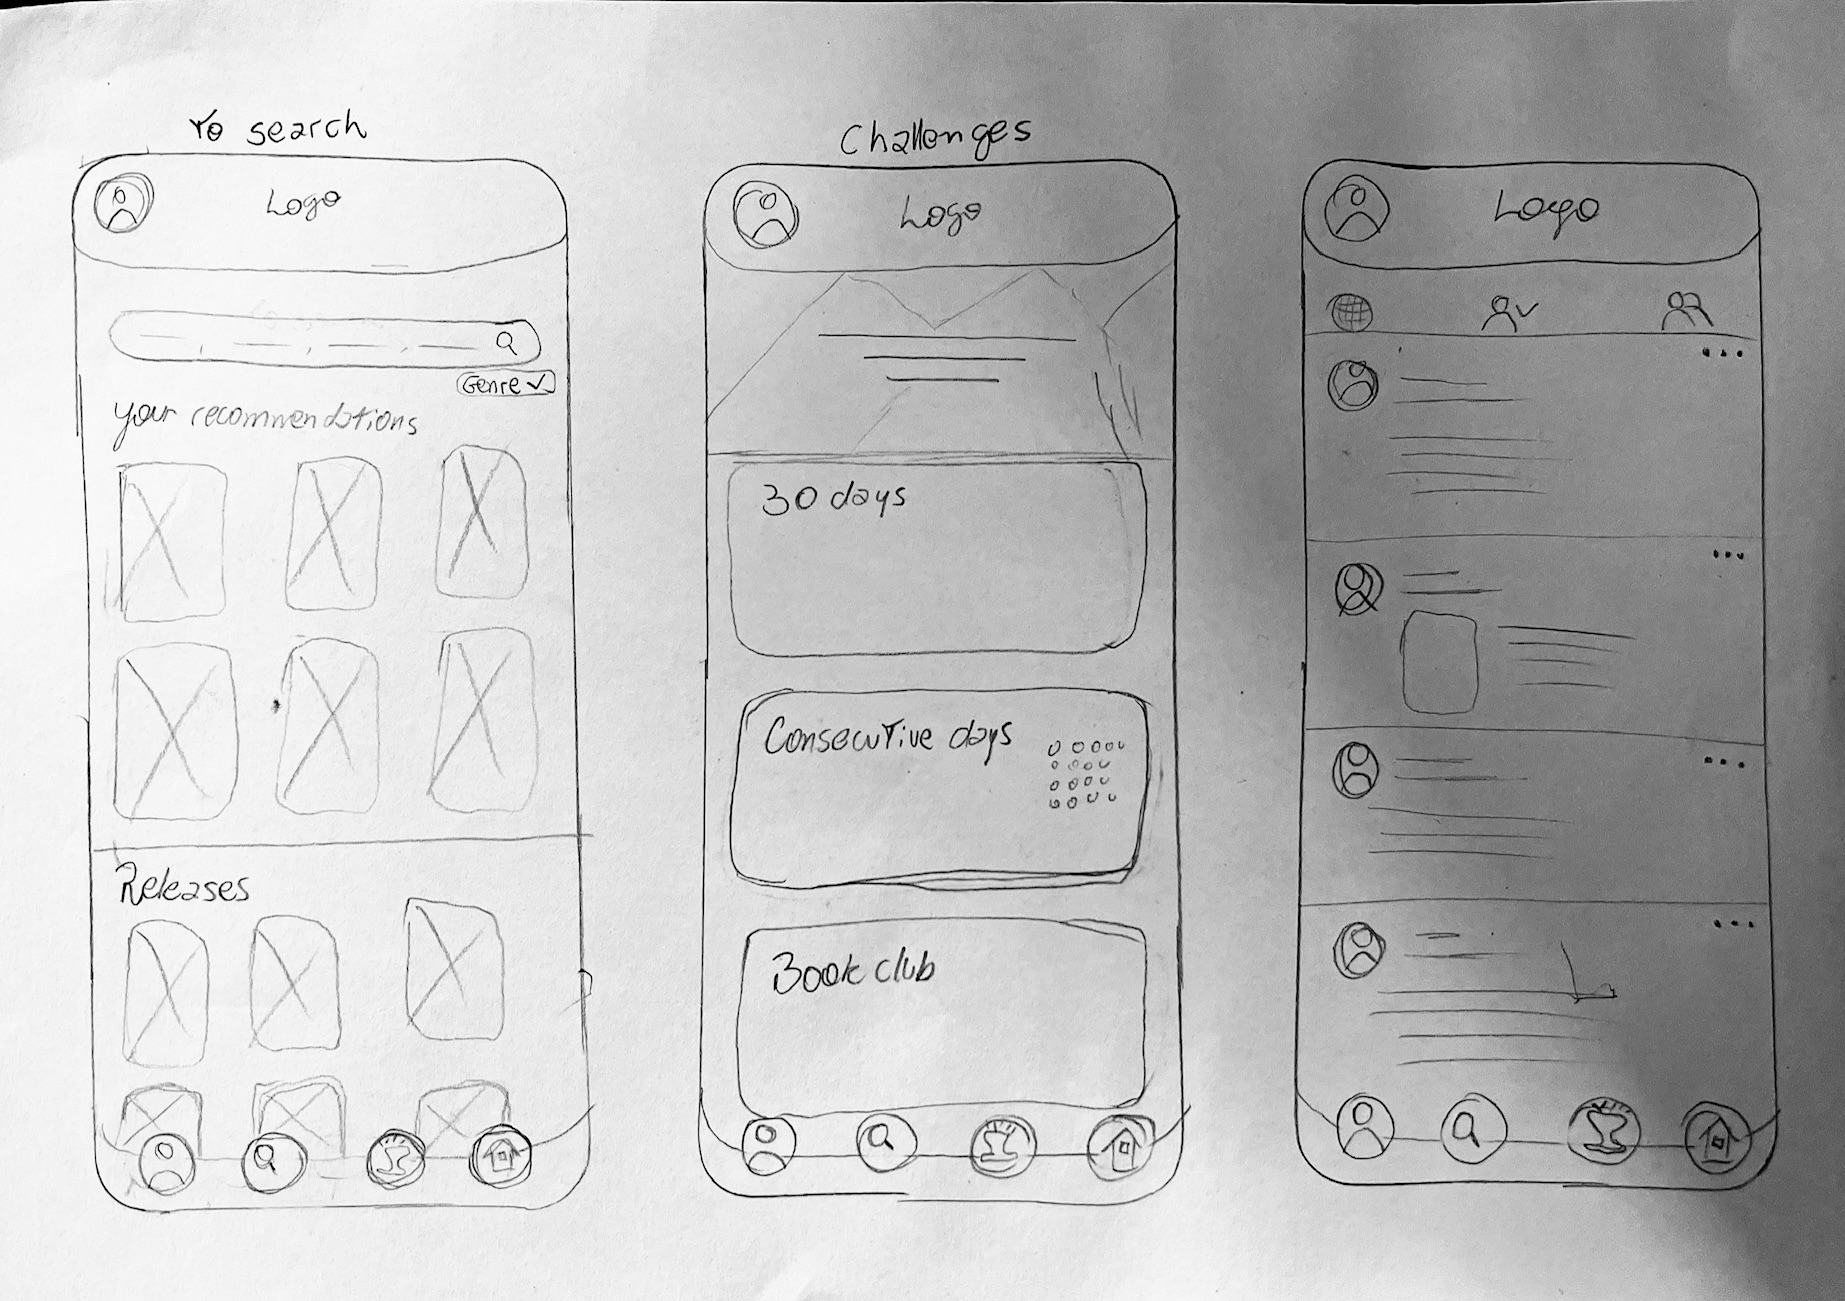 To search
Logo
Genre
your recommendations
Releases
Challenges
Logo
30 days
Consecutive days
Book club
Logo